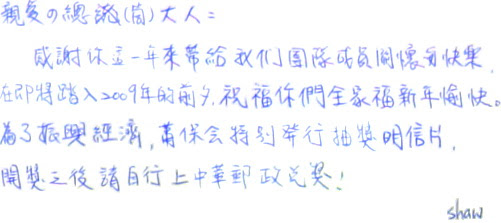 親愛の總議(筒)大人:
感謝你這一年來帶給我们團隊成員關懷与快樂,
在即將踏入2009年的前夕,祝福你們全家福新年愉快。
為了振興經濟,蕭保会特別發行抽獎明信片,
開獎之後請自行上中華郵政兌獎!
shaw